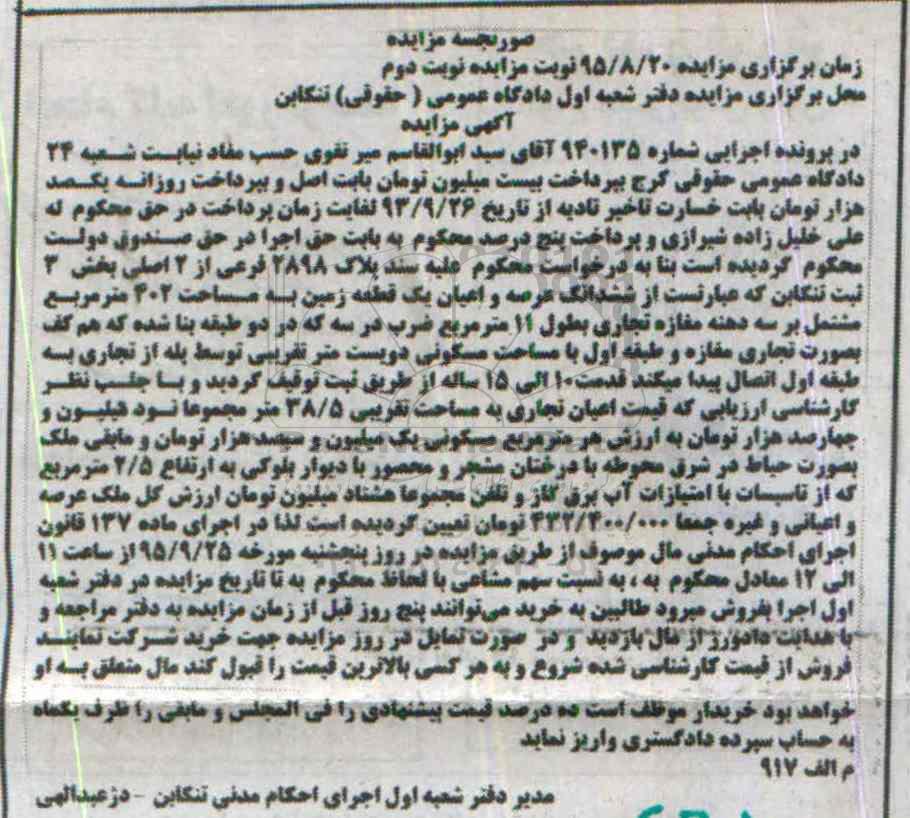 صورتجسه مزایده
زمان برگزاری مزایده ۹۵/۸/۲۰ نوبت مزایده نوبت دوم
محل برگزاری مزایده دفتر شعبه اول دادگاه عمومی ( حقوقی) تنکابن
آگهی مزایده
در پرونده اجرایی شماره ۹۴۰۱۳۵ آقای سید ابوالقاسم میر تقوی حسب مفاد نیابت شعبه ۲۴
دادگاه عمومی حقوقی کرج بپرداخت بیست میلیون تومان بابت اصل و بپرداخت روزانه یکصد
هزار تومان بابت خسارت تاخیر تادیه از تاریخ ۹۳/۹/۲۶ لغایت زمان پرداخت در حق محکوم له
علی خلیل زاده شیرازی و پرداخت پنج درصد محکوم به بابت حق اجرا در حق صندوق دولت
محکوم گردیده است بنا به درخواست محکوم علیه سند پلاک ۲۸۹۸ فرعی از ۲ اصلی بخش ۳
ثبت تنکابن که عبارتست از ششدانگ عرصه و اعیان یک قطعه زمین به مساحت ۴۰۲ مترمربع
مشتمل بر سه دهنه مغازه تجاری بطول ۱۱ مترمربع ضرب در سه که در دو طبقه بنا شده که هم کف
بصورت تجاری مغازه و طبقه اول با مساحت مسکونی دویست متر تقریبی توسط پله از تجاری به
طبقه اول اتصال پیدا میکند قدمت ۱۰ الی ۱۵ ساله از طریق ثبت توقیف گردید و با جلب نظر
کارشناسی ارزیابی که قیمت اعیان تجاری به مساحت تقریبی ۳۸/۵ متر مجموعا نود میلیون و
چهارصد هزار تومان به ارزش هر مترمربع مسکونی یک میلیون و سیصد هزار تومان و مابقی ملک
بصورت حیاط در شرق محوطه با درختان مشجر و محصور با دیوار بلوکی به ارتفاع ۲/۵ مترمربع
که از تاسیسات با امتیازات آب برق گاز و تلفن مجموعا هشتاد میلیون تومان ارزش کل ملک عرصه
و اعیانی و غیره جمعا تومان تعیین گردیده است لذا در اجرای ماده ۱۳۷ قانون
اجرای احکام مدنی مال موصوف از طریق مزایده در روز پنجشنبه مورخه ۹۵/۹/۲۵ از ساعت ۱۱
الی ۱۲ معادل محکوم به ، به نسبت سهم مشاعی با لحاظ محکوم به تا تاریخ مزایده در دفتر شعبه
اول اجرا بفروش میرود طالبین به خرید می‌توانند پنج روز قبل از زمان مزایده به دفتر مراجعه و
با هدایت دادورز از مال بازدید و در صورت تمایل در روز مزایده جهت خرید شرکت نمایند
فروش از قیمت کارشناسی شده شروع و به هر کسی بالاترین قیمت را قبول کند مال متعلق به او
خواهد بود خریدار موظف است ده درصد قیمت پیشنهادی را فی المجلس و مابقی را ظرف یکماه
به حساب سپرده دادگستری واریز نماید
م الف ۹۱۷
مدیر دفتر شعبه اول اجرای احکام مدنی تنکابن - دژعبدالهی